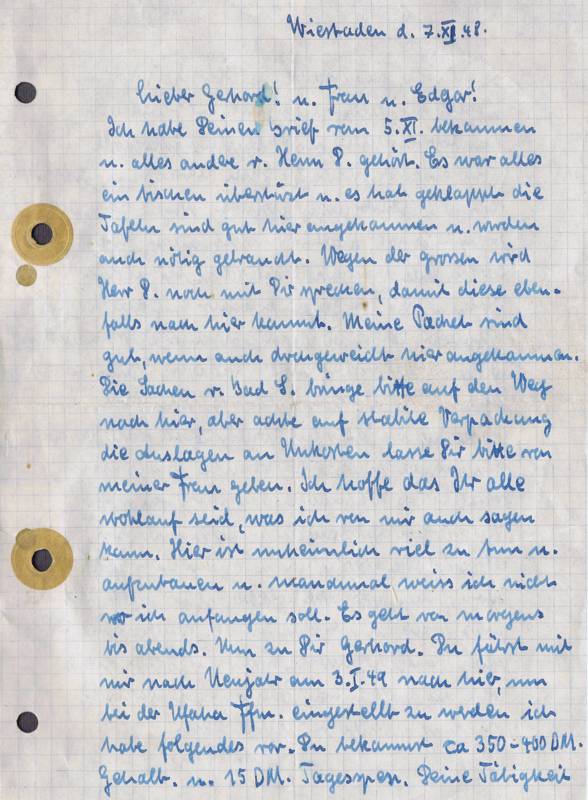 Wiesbaden d. 7.XI.48.
Lieber Gerhard! u. Frau u. Edgar!
Ich habe Deinen Brief vom 5.XI. bekommen
u. alles andere v. Herrn P. gehört. Es war alles
ein bischen überstürzt u. es hat geklappt die
Tafeln sind gut hier angekommen u. wurden
auch nötig gebraucht. Wegen der grossen wird
Herr P. noch mit Dir sprechen, damit diese eben-
falls nach hier kommt. Meine Packet sind
gut, wenn auch durchgeweicht hier angekommen.
Die Sachen v. Bad S. bringe bitte auf den Weg
nach hier, aber achte auf stabile Verpackung
die Auslagen an Unkosten lasse Dir bitte von
meiner Frau geben. Ich hoffe das Ihr alle
wohlauf seid, was ich von mir auch sagen
kann. Hier ist unheimlich viel zu tun u.
aufzubauen u. manchmal weiss ich nicht
wo ich anfangen soll. Es geht von morgens
bis abends. Nun zu Dir Gerhard. Du fährst mit
mir nach Neujahr am 3.I.49 nach hier, um
bei der Ufaha Ffm. eingestellt zu werden ich
habe folgendes vor. Du bekommst ca 350-400 DM.
Gehalt. u. 15 DM. Tagesspes. Deine Tätigkeit